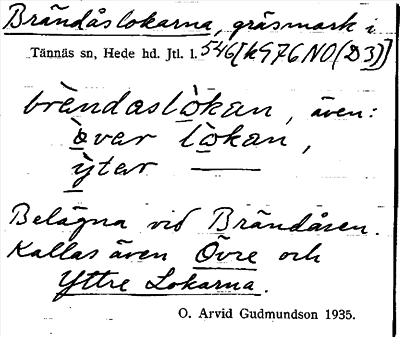 Brändåslokarna, gräsmark i
Tännäs sn, Hede hd. Jtl. l. 546[k976NO(D3)]
brèndaslò̲kan, även:
ò̲var lò̲kan,
ỳ̲tar ——
Belägna vid Brändåsen.
Kallas även Övre och
Yttre Lokarna.
O. Arvid Gudmundson 1935.